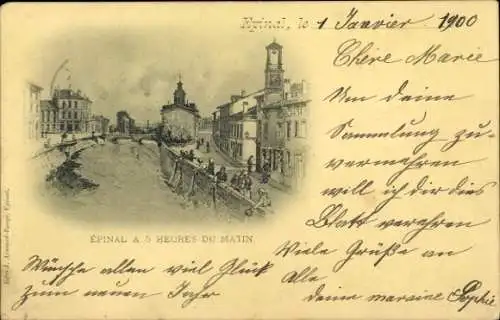 Epinal, le 1 Janvier 1900
Chère Marie
Um deine
Sammlung zu-
vermehren
will ich dir dies
Blatt verehren
Viele Grüße an
Alle
deine Sophie
ÉPINAL A 5 HEURES DU MATIN
Wünsche allen viel Glück
zum neuen Jahr